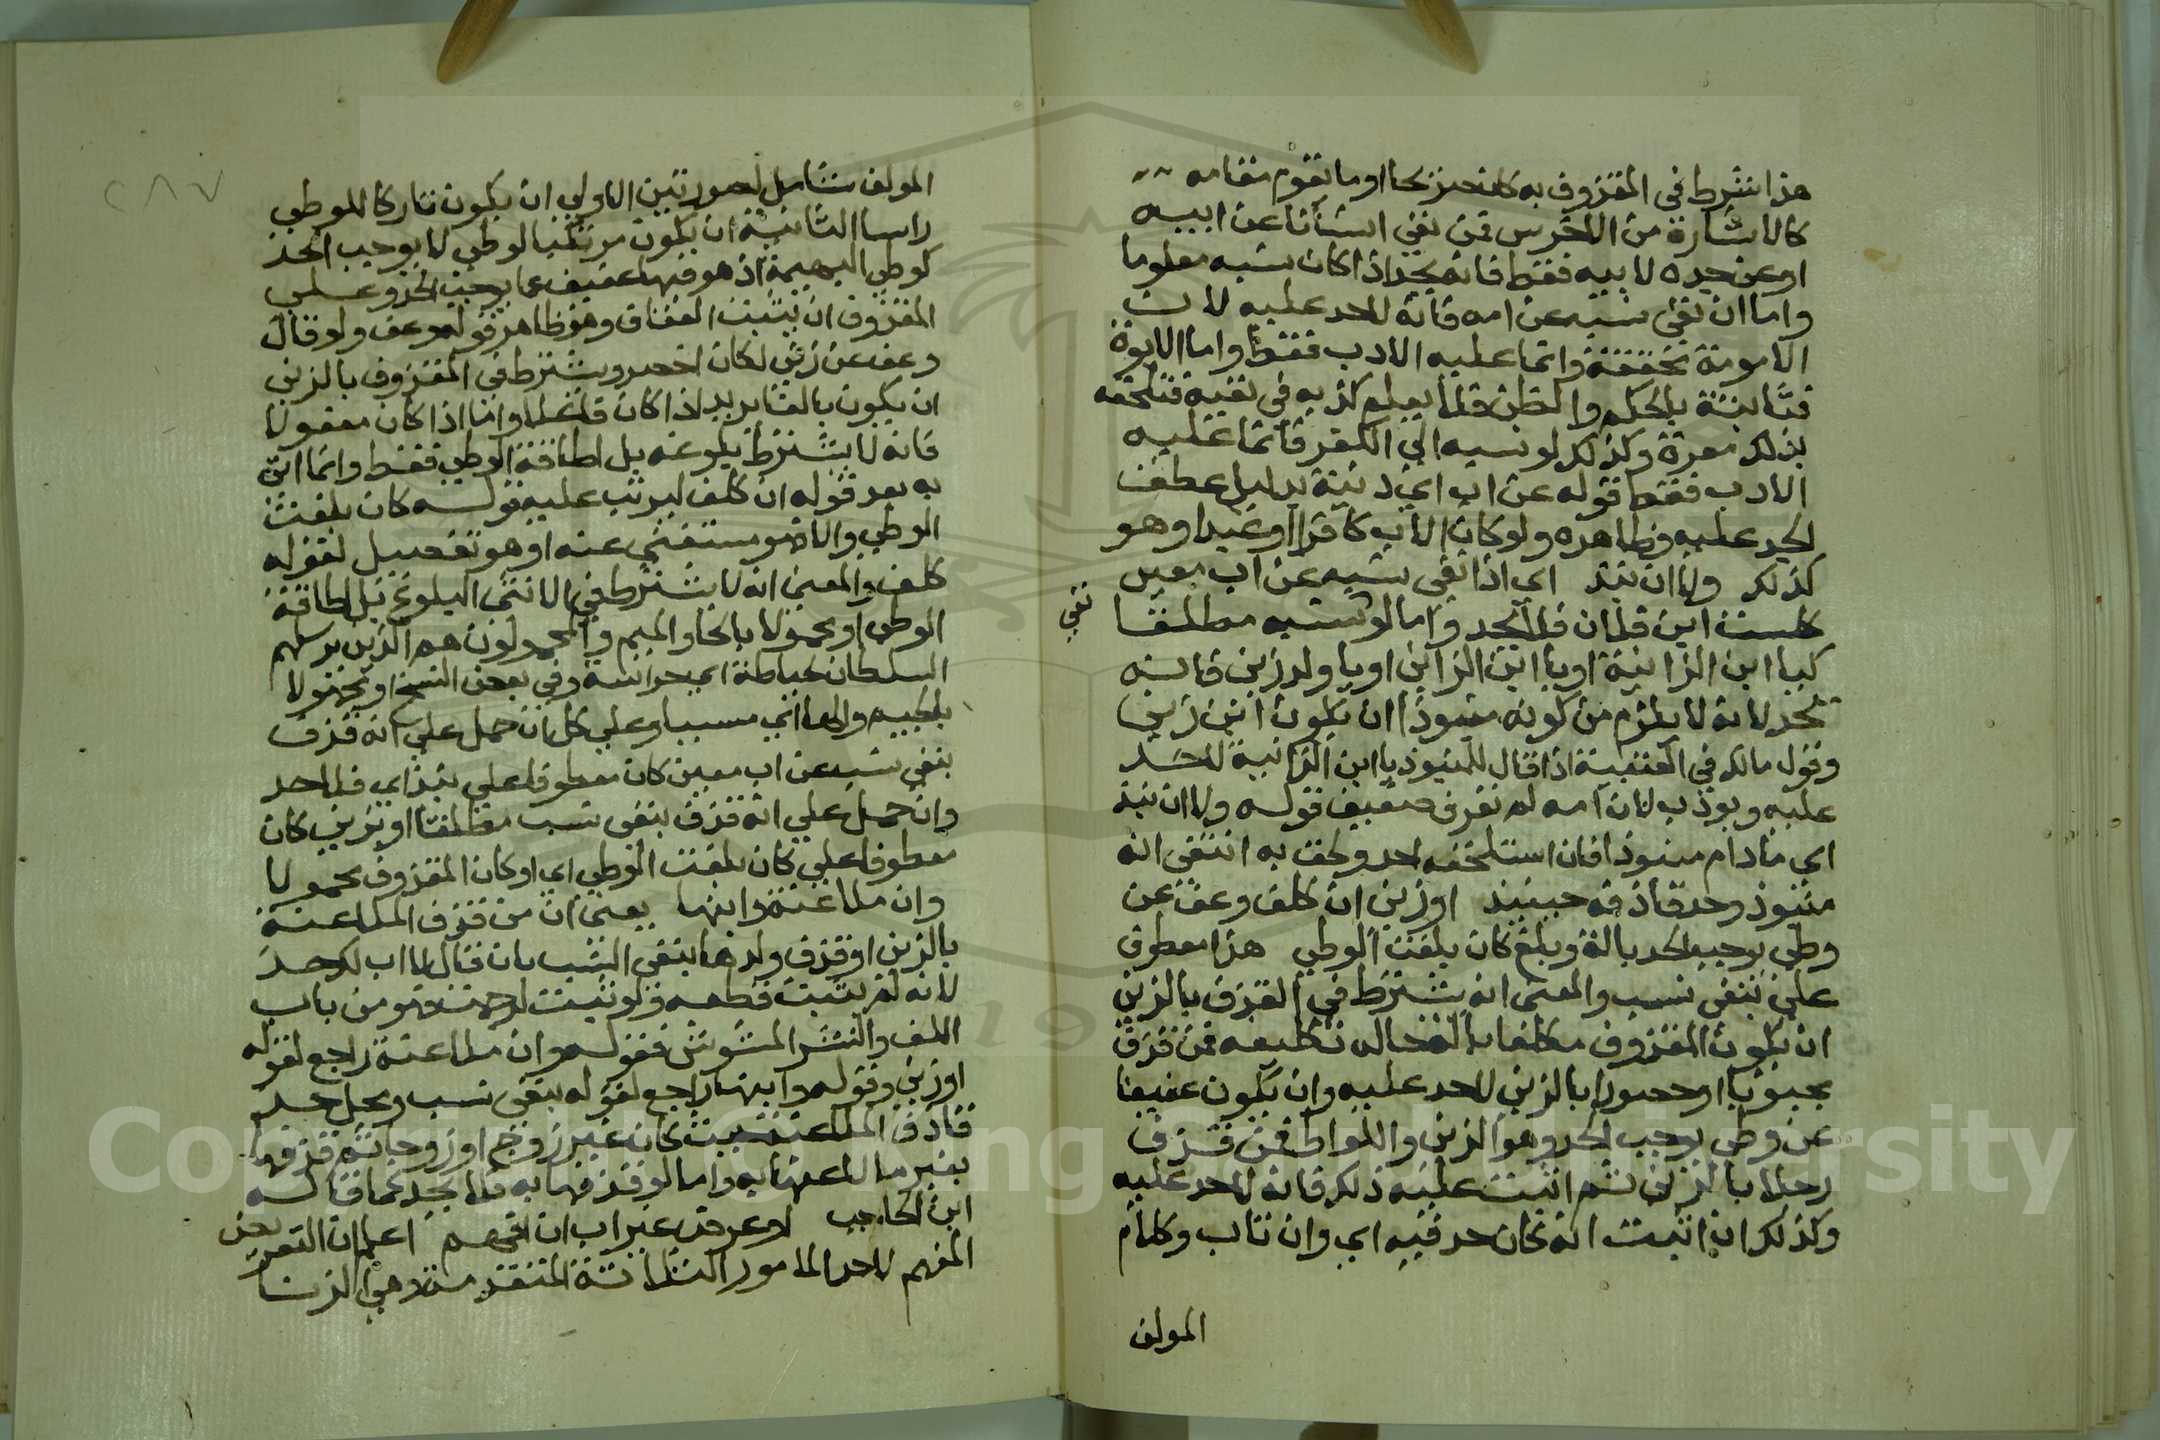 هذا شرط في المقذوف به كان صريحا او ما يقوم مقامه
كالاشارة من الاخرس فمن نفى انسانا عن ابيه
او عن جده لابيه فقط فانه يحد اذا كان نسبه معلوما
واما ان نفى نسبه عن امه فانه لا حد عليه لان
الامومة محققة وانما عليه الادب فقط واما الابوة
فثابتة بالحكم والظن فلا يعلم كذبه في نفيه فتلحقه
بذلك معرة وكذلك لو نسبه الى الكفر فانما عليه
الادب فقط قوله عن اب اي دنية بدليل عطف
لحد عليه وظاهره ولو كان الاب كافرا او عبدا وهو
كذلك ولا ان نبذ اي اذا نفى نسبه عن اب معين
كلست ابن فلان فلا يحد واما لو نسبه مطلقا
نفي
كيا ابن الزانية او يا ابن الزاني او يا ولد زنى فانه
يحد لانه لا يلزم من كونه منبوذا ان يكون ابن زنى
وقول مالك في العتبية اذا قال للمنبوذ يا ابن الزانية لا حد
عليه ويودب لان امه لم تعرف ضعيف قوله ولا ان نبذ
اي ما دام منبوذا فان استلحقه احد ولحق به انتفى انه
منبوذ وحد قاذفه حينئذ او زنى ان كلف وعف عن
وطى يوجب الحد بالة وبلغ كان بلغت الوطي هذا معطوف
على بنفي نسب والمعنى انه يشترط في القذف بالزنى
ان يكون المقذوف مكلفا بالة حال تكليفه فمن قذف
مجبوبا او حصورا بالزنى لا حد عليه وان يكون عفيفا
عن وطى يوجب الحد وهو الزنى واللواط فمن قذف
رجلا بالزنى ثم اثبت عليه ذلك فانه لا حد عليه
وكذلك ان اثبت انه كان حد فيه اي وان تاب وكلام
المولف
٢٨٧
المولف شامل لصورتين الاولى ان يكون تاركا للوطي
راسا الثانية ان يكون مرتكبا لوطي لا يوجب الحد
كوطي البهيمة اذ هو فيها عفيف عما يوجب الحد وعلى
المقذوف ان يثبت العفاف وهو ظاهر قوله وعف ولو قال
وعف عن زنى لكان اخصر ويشترط في المقذوف بالزنى
ان يكون بالغا يريد اذا كان فاعلا واما اذا كان مفعولا
فانه لا يشترط بلوغه بل اطاقة الوطي فقط وانما اتى
به بعد قوله ان كلف ليرتب عليه قوله كان بلغت
الوطي والا فهو مستغنى عنه او هو تفصيل لقوله
كلف والمعنى انه لا يشترط في الانثى البلوغ بل اطاقة
الوطي او محمولا بالحا والميم والمحمولون هم الذين يرسلهم
السلطان لحياطة اي حراسة وفي بعض النسخ او مجهولا
بالجيم والها اي مسببا وعلى كل ان حمل على انه قذف
بنفي نسبه عن اب معين كان معطوفا على نبذ اي فلا حد
وان حمل على انه قذف بنفي نسب مطلقا او بزنى كان
معطوفا على كان بلغت الوطي اي او كان المقذوف محمولا
وان ملاعنة وابنها يعني ان من قذف الملاعنة
بالزنى او قذف ولدها بنفي النسب بان قال لا اب لك حد
لانه لم يثبت قطعه ولو ثبت لرجمت فهو من باب
اللف والنشر المشوش فقوله وان ملاعنة راجع لقوله
او زنى وقوله وابنها راجع لقوله بنفي نسب ومحل حد
قاذف الملاعنة حيث كان غير زوج او زوجا ثم قذفها
بغير ما لاعنها به واما لو قذفها به فلا يحد كما قاله
ابن الحاجب او عرض غير اب ان افهم اعلم ان التعريض
المفهم لاحد الامور الثلاثة المتقدمة وهي الزنا